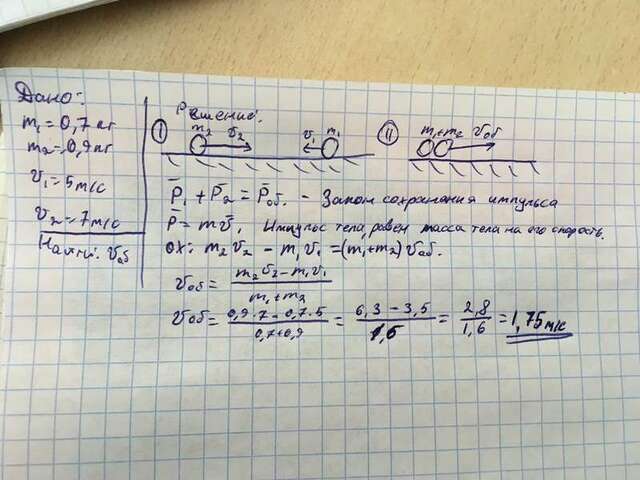 Дано:
m₁ = 0,7 кг
m₂ = 0,9 кг
v₁ = 5 м/с
v₂ = 7 м/с
Найти: vоб
Решение:
I
m₂ v₂
v₁ m₁
II
m₁+m₂ vоб
p̄₁ + p̄₂ = p̄об. - Закон сохранения импульса
p̄ = mv̄, Импульс тела, равен масса тела на его скорость.
ox: m₂v₂ - m₁v₁ = (m₁+m₂)vоб.
vоб = (m₂v₂ - m₁v₁)/(m₁+m₂)
vоб = (0,9·7 - 0,7·5)/(0,7+0,9) = (6,3 - 3,5)/1,6 = 2,8/1,6 = 1,75 м/с